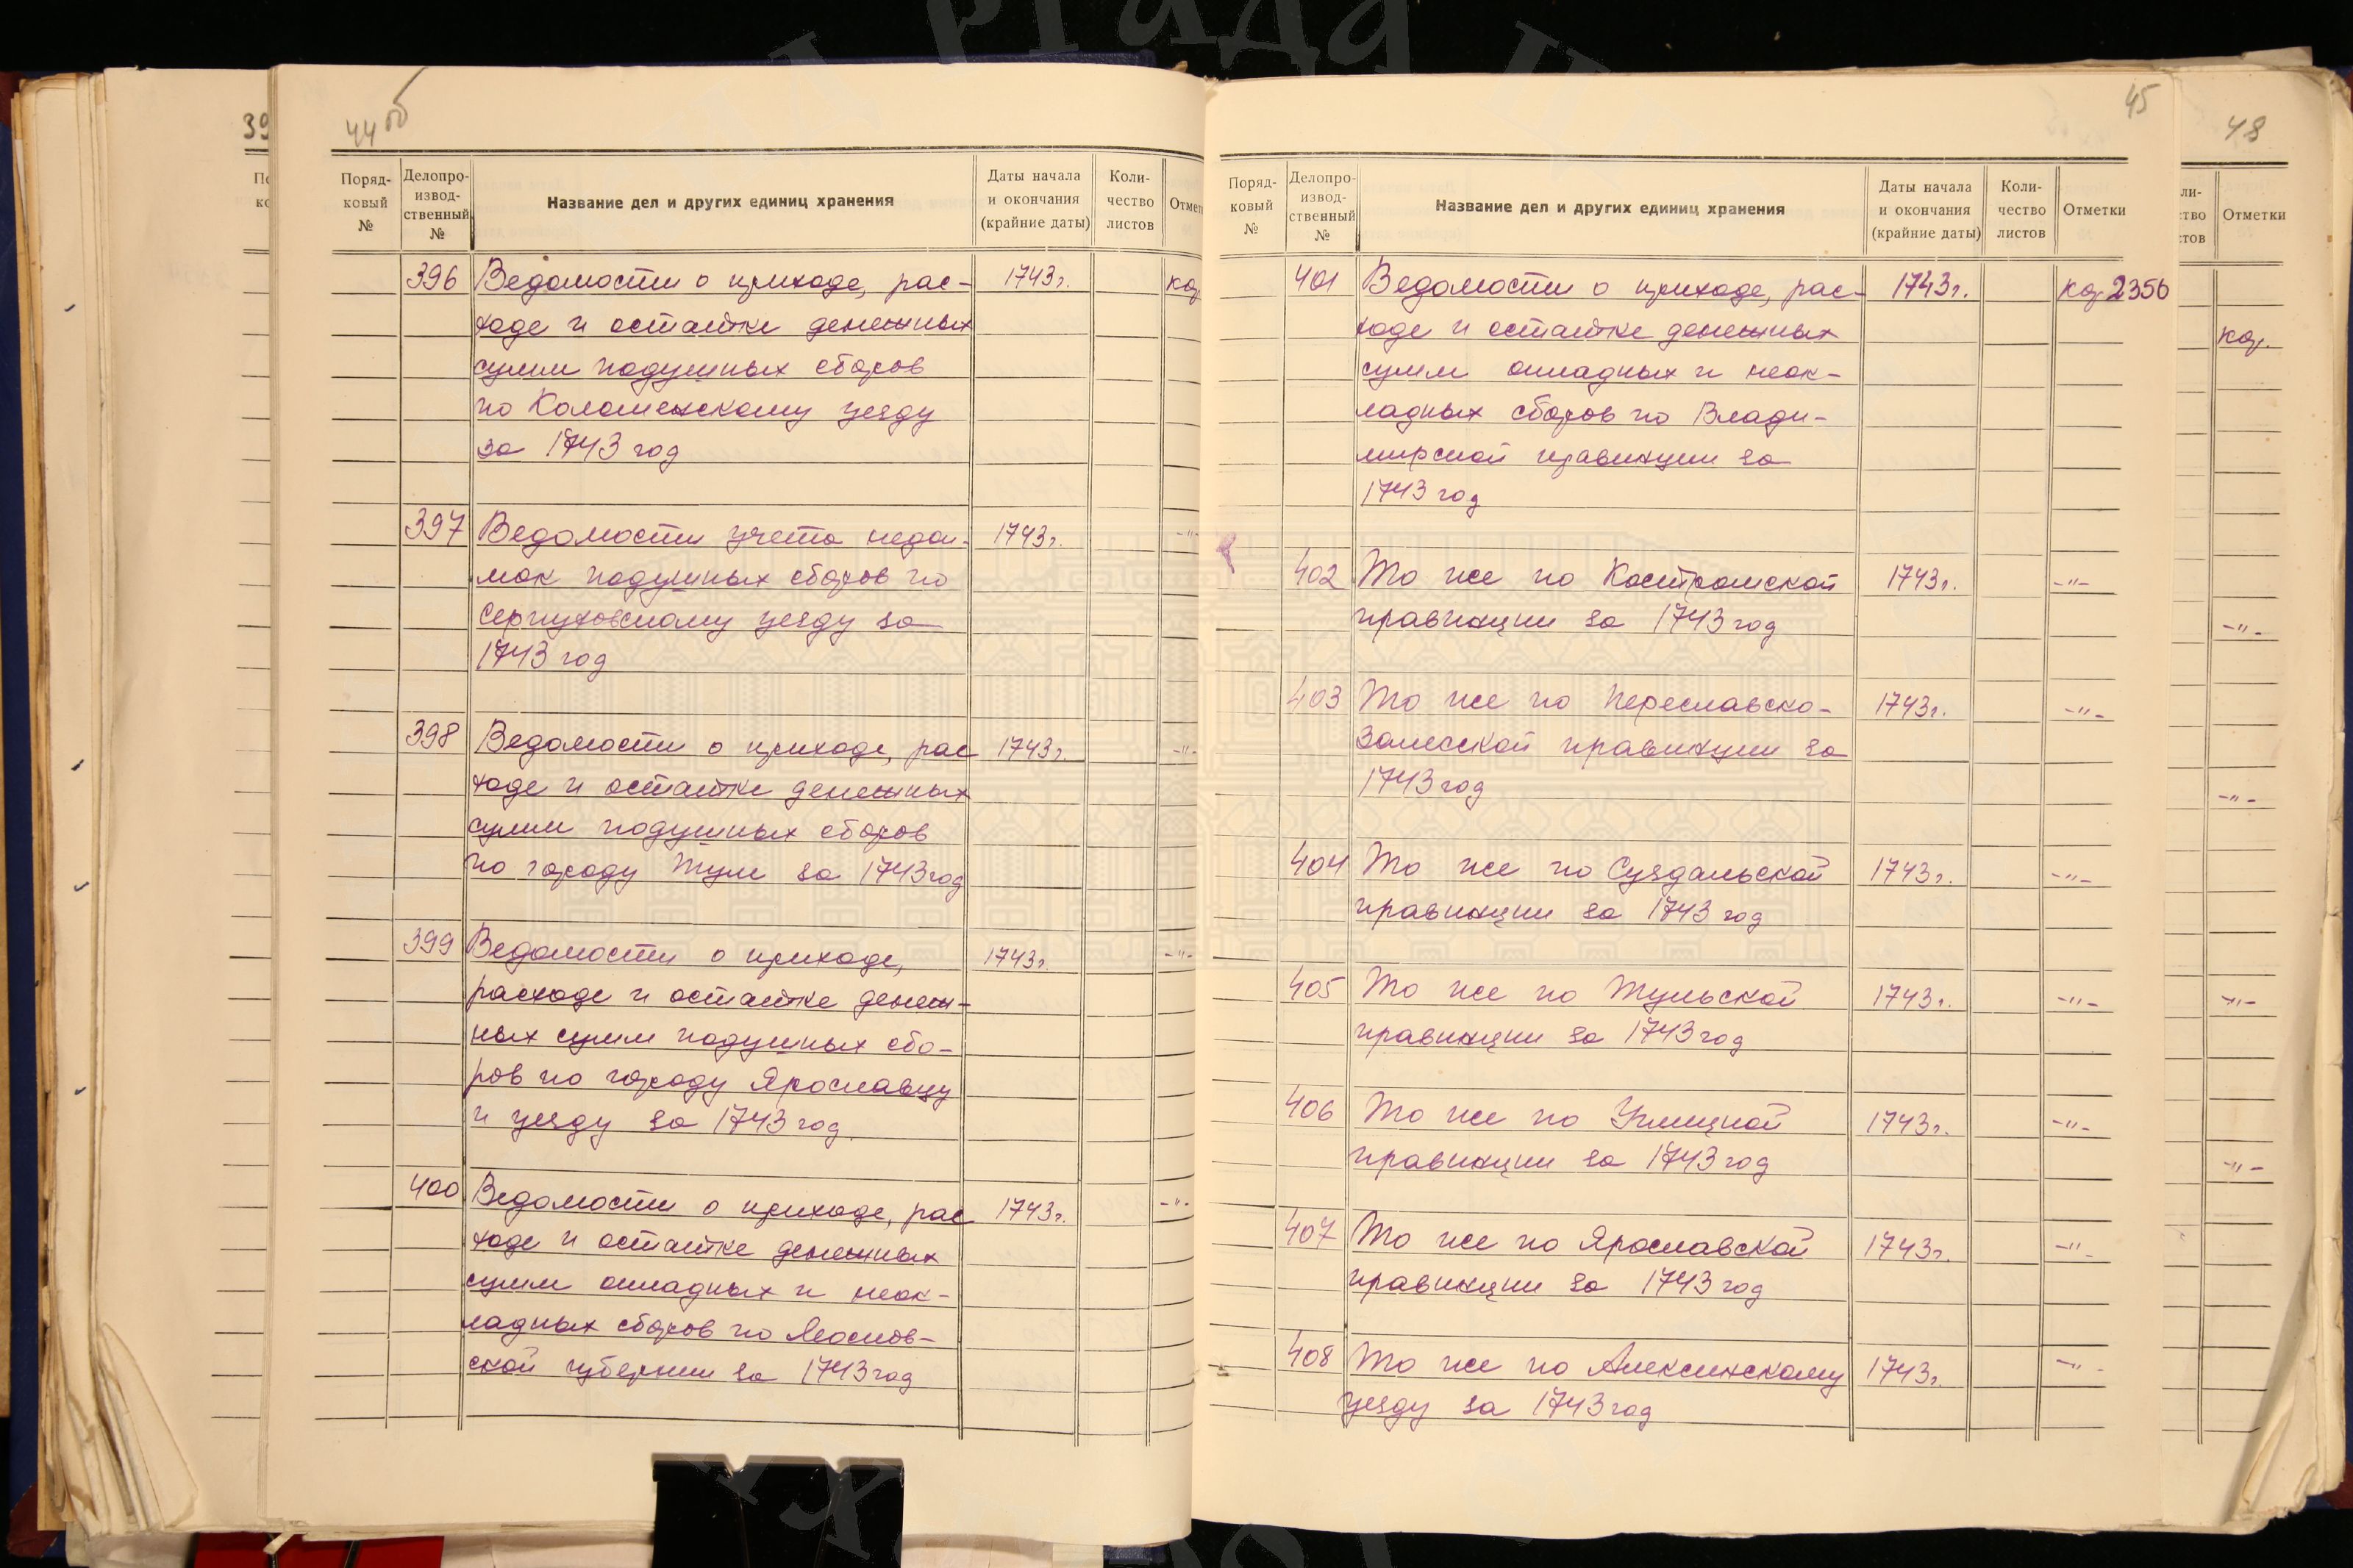 44 об
Поряд-
ковый
№
Делопро-
извод-
ственный
№
Название дел и других единиц хранения
Даты начала
и окончания
(крайние даты)
Коли-
чество
листов
396 Ведомости о приходе, рас- 1743 г.
ходе и остатке денежных
сумм подушных сборов
по Коломенскому уезду
за 1743 год
397 Ведомости учета недои- 1743 г. -"-
мок подушных сборов по
Серпуховскому уезду за
1743 год
398 Ведомости о приходе, рас 1743 г. -"-
ходе и остатке денежных
сумм подушных сборов
по городу Туле за 1743 год
399 Ведомости о приходе, 1743 г. -"-
расходе и остатке денеж-
ных сумм подушных сбо-
ров по городу Ярославцу
и уезду за 1743 год
400 Ведомости о приходе, рас 1743 г. -"-
ходе и остатке денежных
сумм окладных и неок-
ладных сборов по Москов-
ской губернии за 1743 год
45
Поряд-
ковый
№
Делопро-
извод-
ственный
№
Название дел и других единиц хранения
Даты начала
и окончания
(крайние даты)
Коли-
чество
листов
Отметки
401 Ведомости о приходе, рас- 1743 г. 2356
ходе и остатке денежных
сумм окладных и неок-
ладных сборов по Влади-
мирской провинции за
1743 год
402 То же по Костромской 1743 г. -"-
провинции за 1743 год
403 То же по Переславско- 1743 г. -"-
Залесской провинции за
1743 год
404 То же по Суздальской 1743 г. -"-
провинции за 1743 год
405 То же по Тульской 1743 г. -"-
провинции за 1743 год
406 То же по Углицкой 1743 г. -"-
провинции за 1743 год
407 То же по Ярославской 1743 г. -"-
провинции за 1743 год
408 То же по Алексинскому 1743 г. -"-
уезду за 1743 год
48
Отметки
-"-
-"-
-"-
-"-